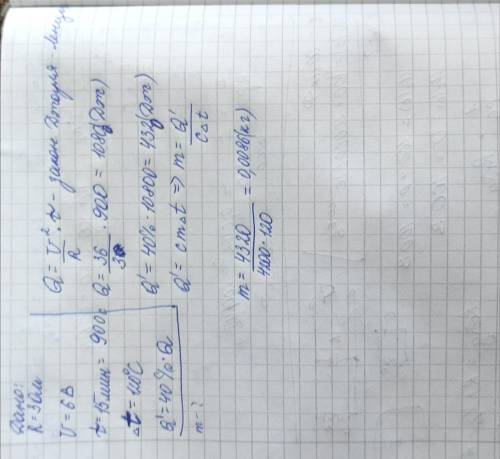 Дано:
R = 3 Ом
U = 6 В
t = 15 мин = 900 с
Δt = 120°C
Q' = 40% · Q
m - ?
Q = U²/R · t - закон Джоуля - Ленца
Q = 36/3 · 900 = 10800 (Дж)
Q' = 40% · 10800 = 4320 (Дж)
Q' = cmΔt => m = Q'/cΔt
m = 4320/4200·120 = 0,0086 (кг)